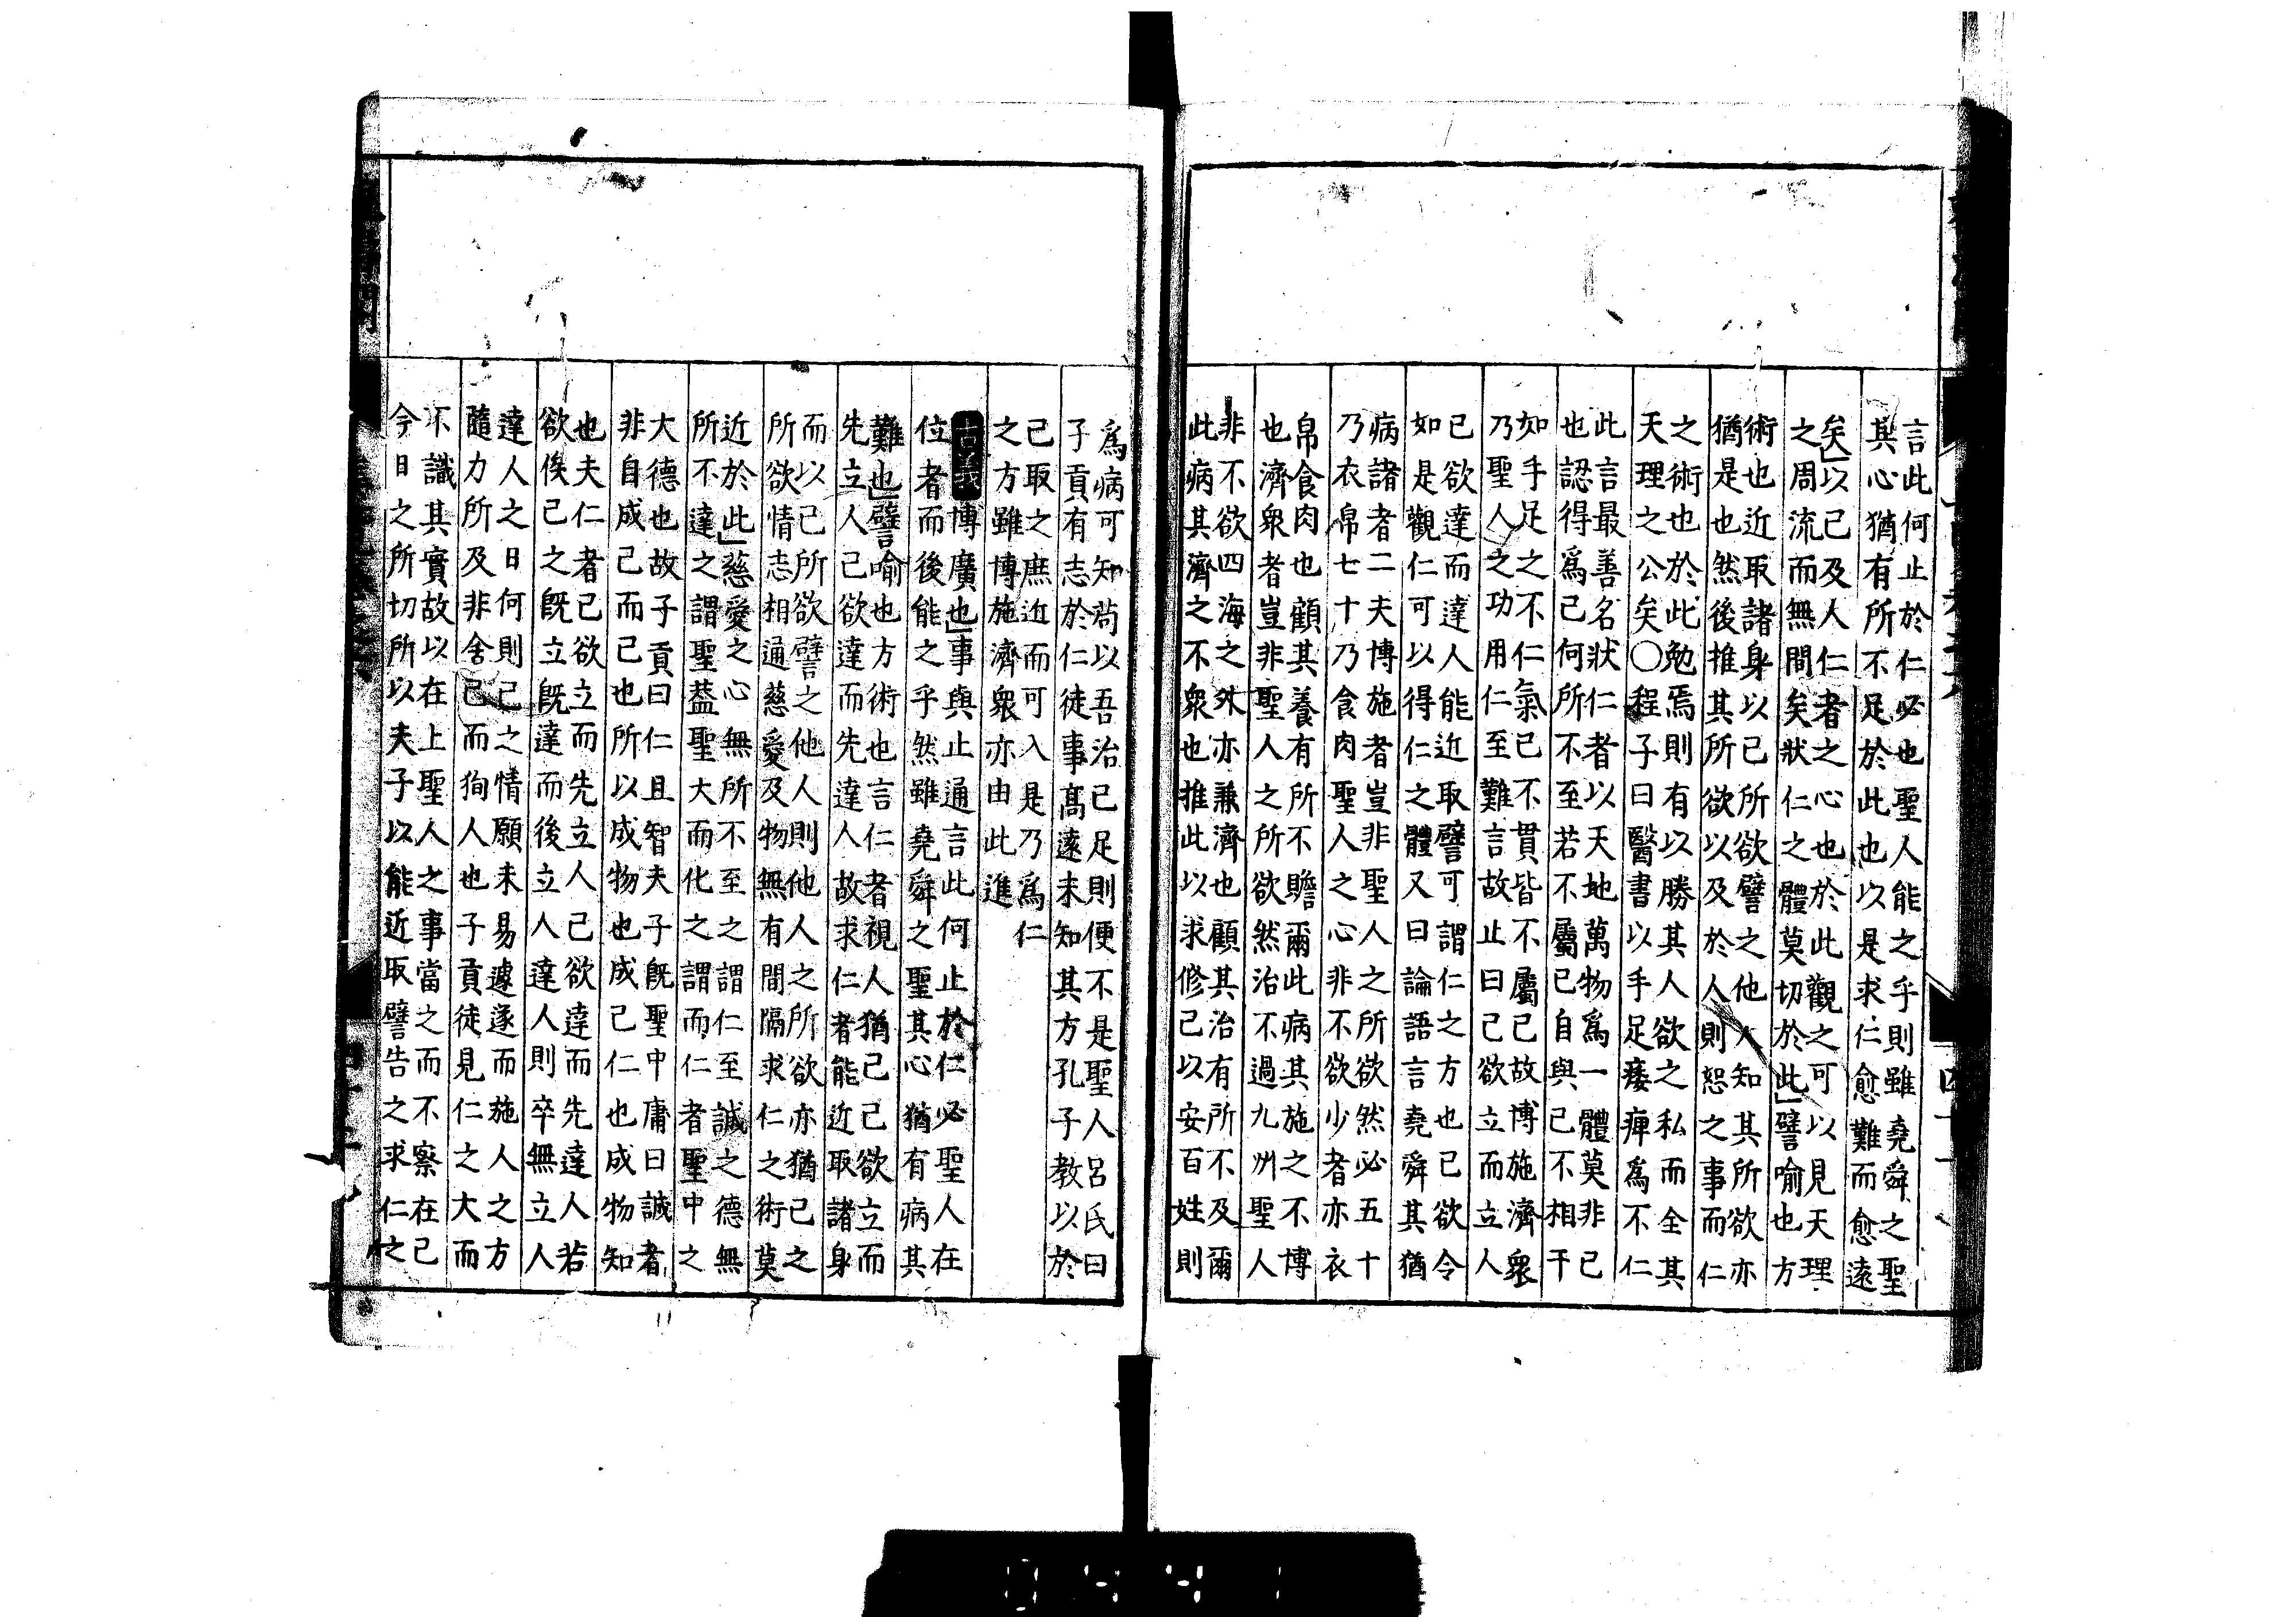 言此何止於仁必也聖人能之乎則雖堯舜之聖
其心猶有所不足於此也以是求仁愈難而愈遠
矣」以己及人仁者之心也於此觀之可以見天理
之周流而無間矣狀仁之體莫切於此」譬喻也方
術也近取諸身以己所欲譬之他人知其所欲亦
猶是也然後推其所欲以及於人則恕之事而仁
之術也於此勉焉則有以勝其人欲之私而全其
天理之公矣○程子曰醫書以手足痿痺爲不仁
此言最善名狀仁者以天地萬物爲一體莫非己
也認得爲己何所不至若不屬己自與己不相干
如手足之不仁氣已不貫皆不屬己故博施濟衆
乃聖人之功用仁至難言故止曰己欲立而立人
己欲達而達人能近取譬可謂仁之方也已欲令
如是觀仁可以得仁之體又曰論語言堯舜其猶
病諸者二夫博施者豈非聖人之所欲然必五十
乃衣帛七十乃食肉聖人之心非不欲少者亦衣
帛食肉也顧其養有所不贍爾此病其施之不博
也濟衆者豈非聖人之所欲然治不過九州聖人
非不欲四海之外亦兼濟也顧其治有所不及爾
此病其濟之不衆也推此以求修己以安百姓則
爲病可知苟以吾治己足則便不是聖人呂氏曰
子貢有志於仁徒事高遠未知其方孔子教以於
己取之庶近而可入是乃爲仁
之方雖博施濟衆亦由此進
古義博廣也」事與止通言此何止於仁必聖人在
位者而後能之乎然雖堯舜之聖其心猶有病其
難也」譬喻也方術也言仁者視人猶己己欲立而
先立人己欲達而先達人故求仁者能近取諸身
而以己所欲譬之他人則他人之所欲亦猶己之
所欲情志相通慈愛及物無有間隔求仁之術莫
近於此」慈愛之心無所不至之謂仁至誠之德無
所不達之謂聖蓋聖大而化之之謂而仁者聖中之
大德也故子貢曰仁且智夫子既聖中庸曰誠者
非自成己而已也所以成物也成己仁也成物知
也夫仁者己欲立而先立人己欲達而先達人若
欲俟己之既立既達而後立人達人則卒無立人
達人之日何則己之情願未易遽遂而施人之方
隨力所及非舍己而狥人也子貢徒見仁之大而
不識其實故以在上聖人之事當之而不察在己
今日之所切所以夫子以能近取譬告之求仁之